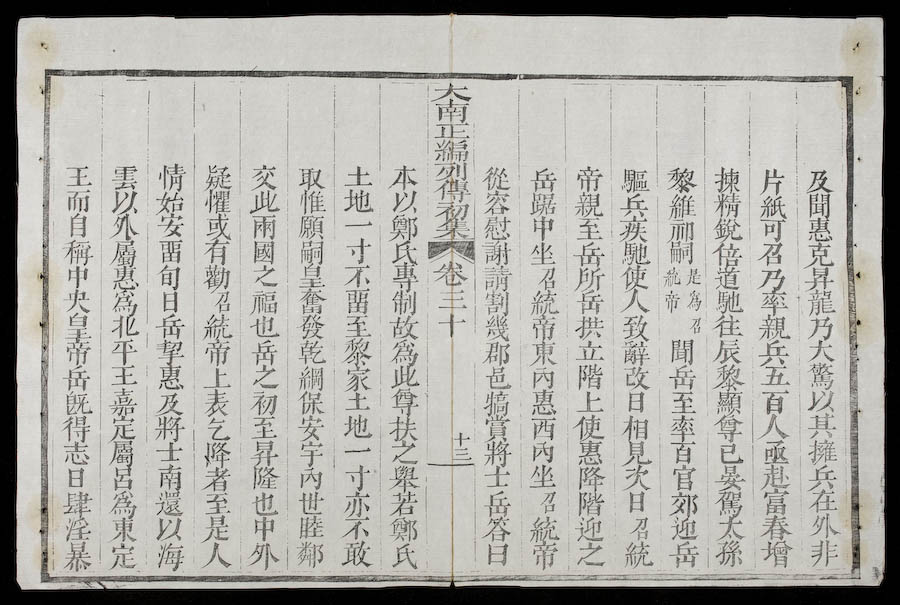 及聞惠克昇龍乃大驚以其擁兵在外非
片紙可召乃率親兵五百人亟赴富春增
揀精銳倍道馳往辰黎顯尊已晏駕太孫
黎維祁嗣是為召統帝聞岳至率百官郊迎岳
驅兵疾馳使人致辭改日相見次日召統
帝親至岳所岳拱立階上使惠降階迎之
岳踞中坐召統帝東內惠西內坐召統帝
從容慰謝請割幾郡邑犒賞將士岳答曰
大南正編列傳初集 卷三十 十三
本以鄭氏專制故為此尊扶之舉若鄭氏
土地一寸不畱至黎家土地一寸亦不敢
取惟願嗣皇奮發乾綱保安宇內世睦鄰
交此兩國之福也岳之初至昇隆也中外
疑懼或有勸召統帝上表乞降者至是人
情始安畱旬日岳挈惠及將士南還以海
雲以外屬惠為北平王嘉定屬呂為東定
王而自稱中央皇帝岳既得志日肆淫暴